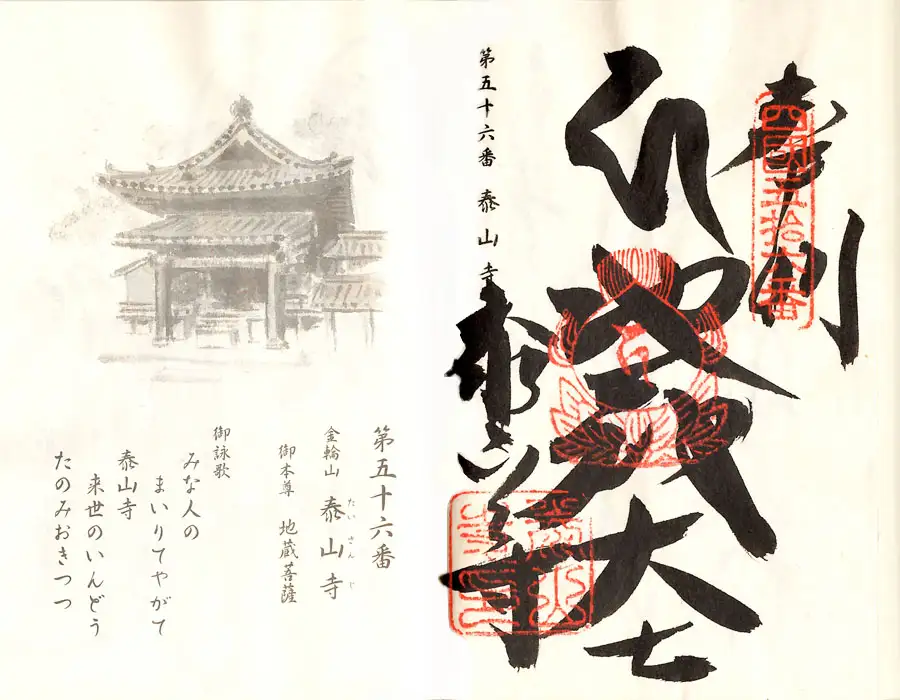 奉納
四國五拾六番
地蔵大士
第五十六番 泰山寺
泰山寺
第五十六番
金輪山 泰山寺
たいさんじ
御本尊 地蔵菩薩
御詠歌
みな人の
まいりてやがて
泰山寺
来世のいんどう
たのみおきつつ